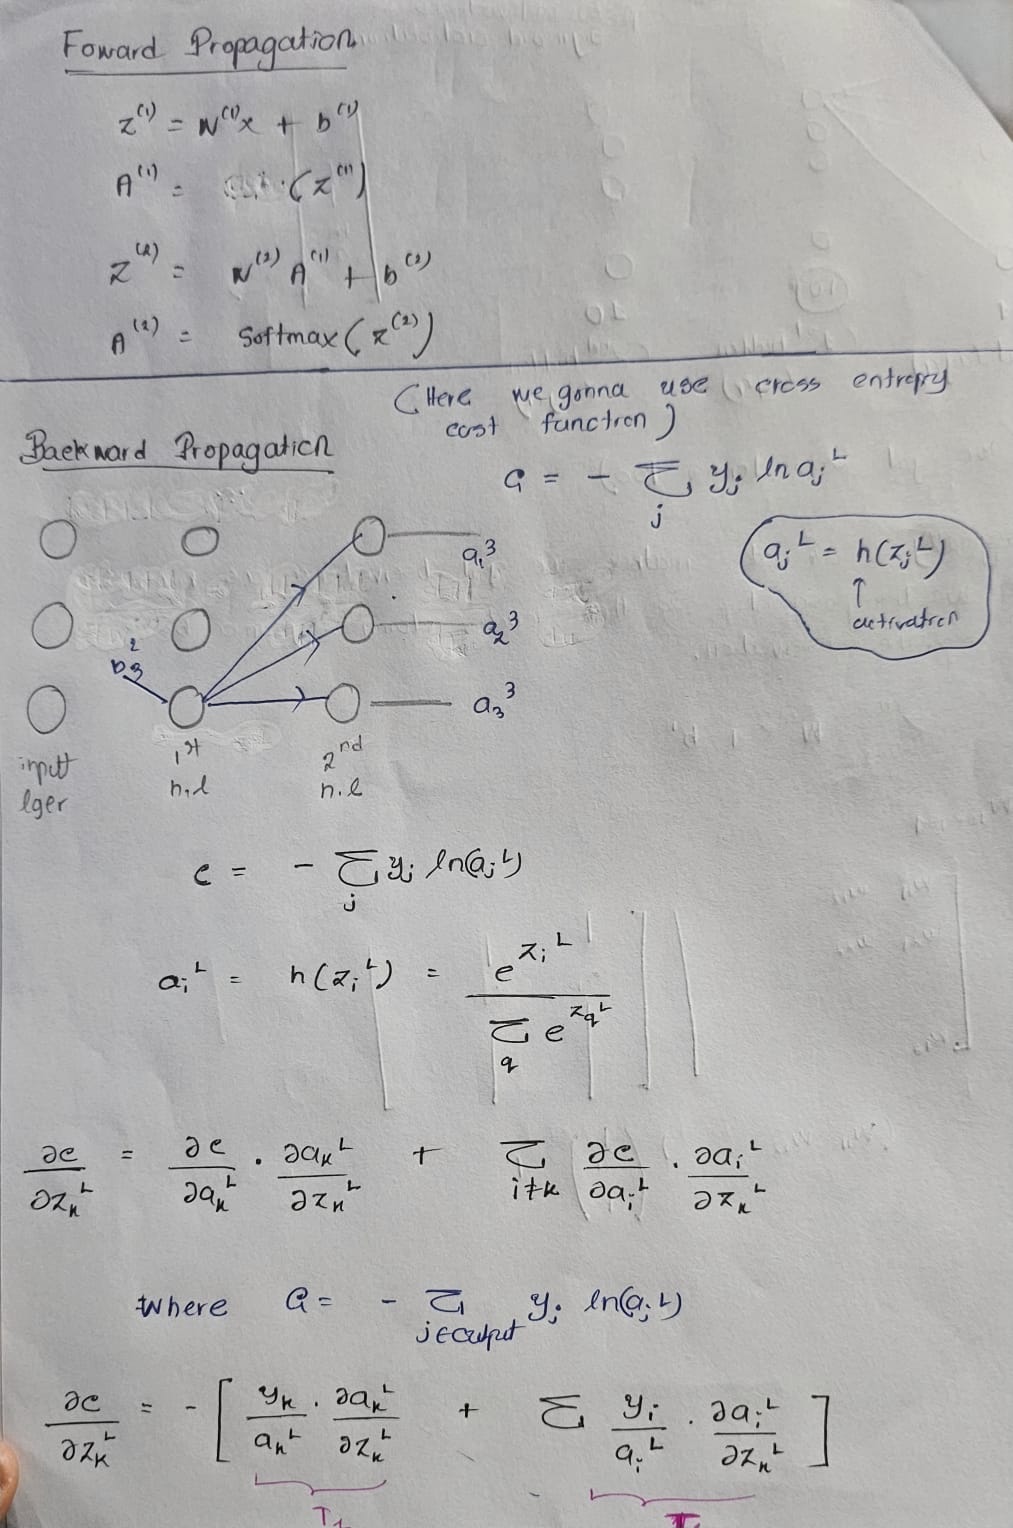 Foward Propagation
z⁽¹⁾ = W⁽¹⁾x + b⁽¹⁾
A⁽¹⁾ = (z⁽¹⁾)
z⁽²⁾ = W⁽²⁾ A⁽¹⁾ + b⁽²⁾
A⁽²⁾ = Softmax(z⁽²⁾)
(Here we gonna use cross entropy
cost function)
Backward Propagation
C = - Σ_j y_j ln a_j^L
a_j^L = h(z_j^L)
↑
activation
a₁³
a₂³
b₃²
a₃³
input
lyer
1st
h.l
2nd
h.l
C = - Σ_j y_j ln(a_j^L)
a_i^L = h(z_i^L) = e^{z_i^L} / Σ_q e^{z_q^L}
∂C/∂z_k^L = ∂C/∂a_k^L . ∂a_k^L/∂z_k^L + Σ_{i≠k} ∂C/∂a_i^L . ∂a_i^L/∂z_k^L
Where C = - Σ_{j∈output} y_j ln(a_j^L)
∂C/∂z_k^L = - [ y_k/a_k^L . ∂a_k^L/∂z_k^L + Σ y_i/a_i^L . ∂a_i^L/∂z_k^L ]